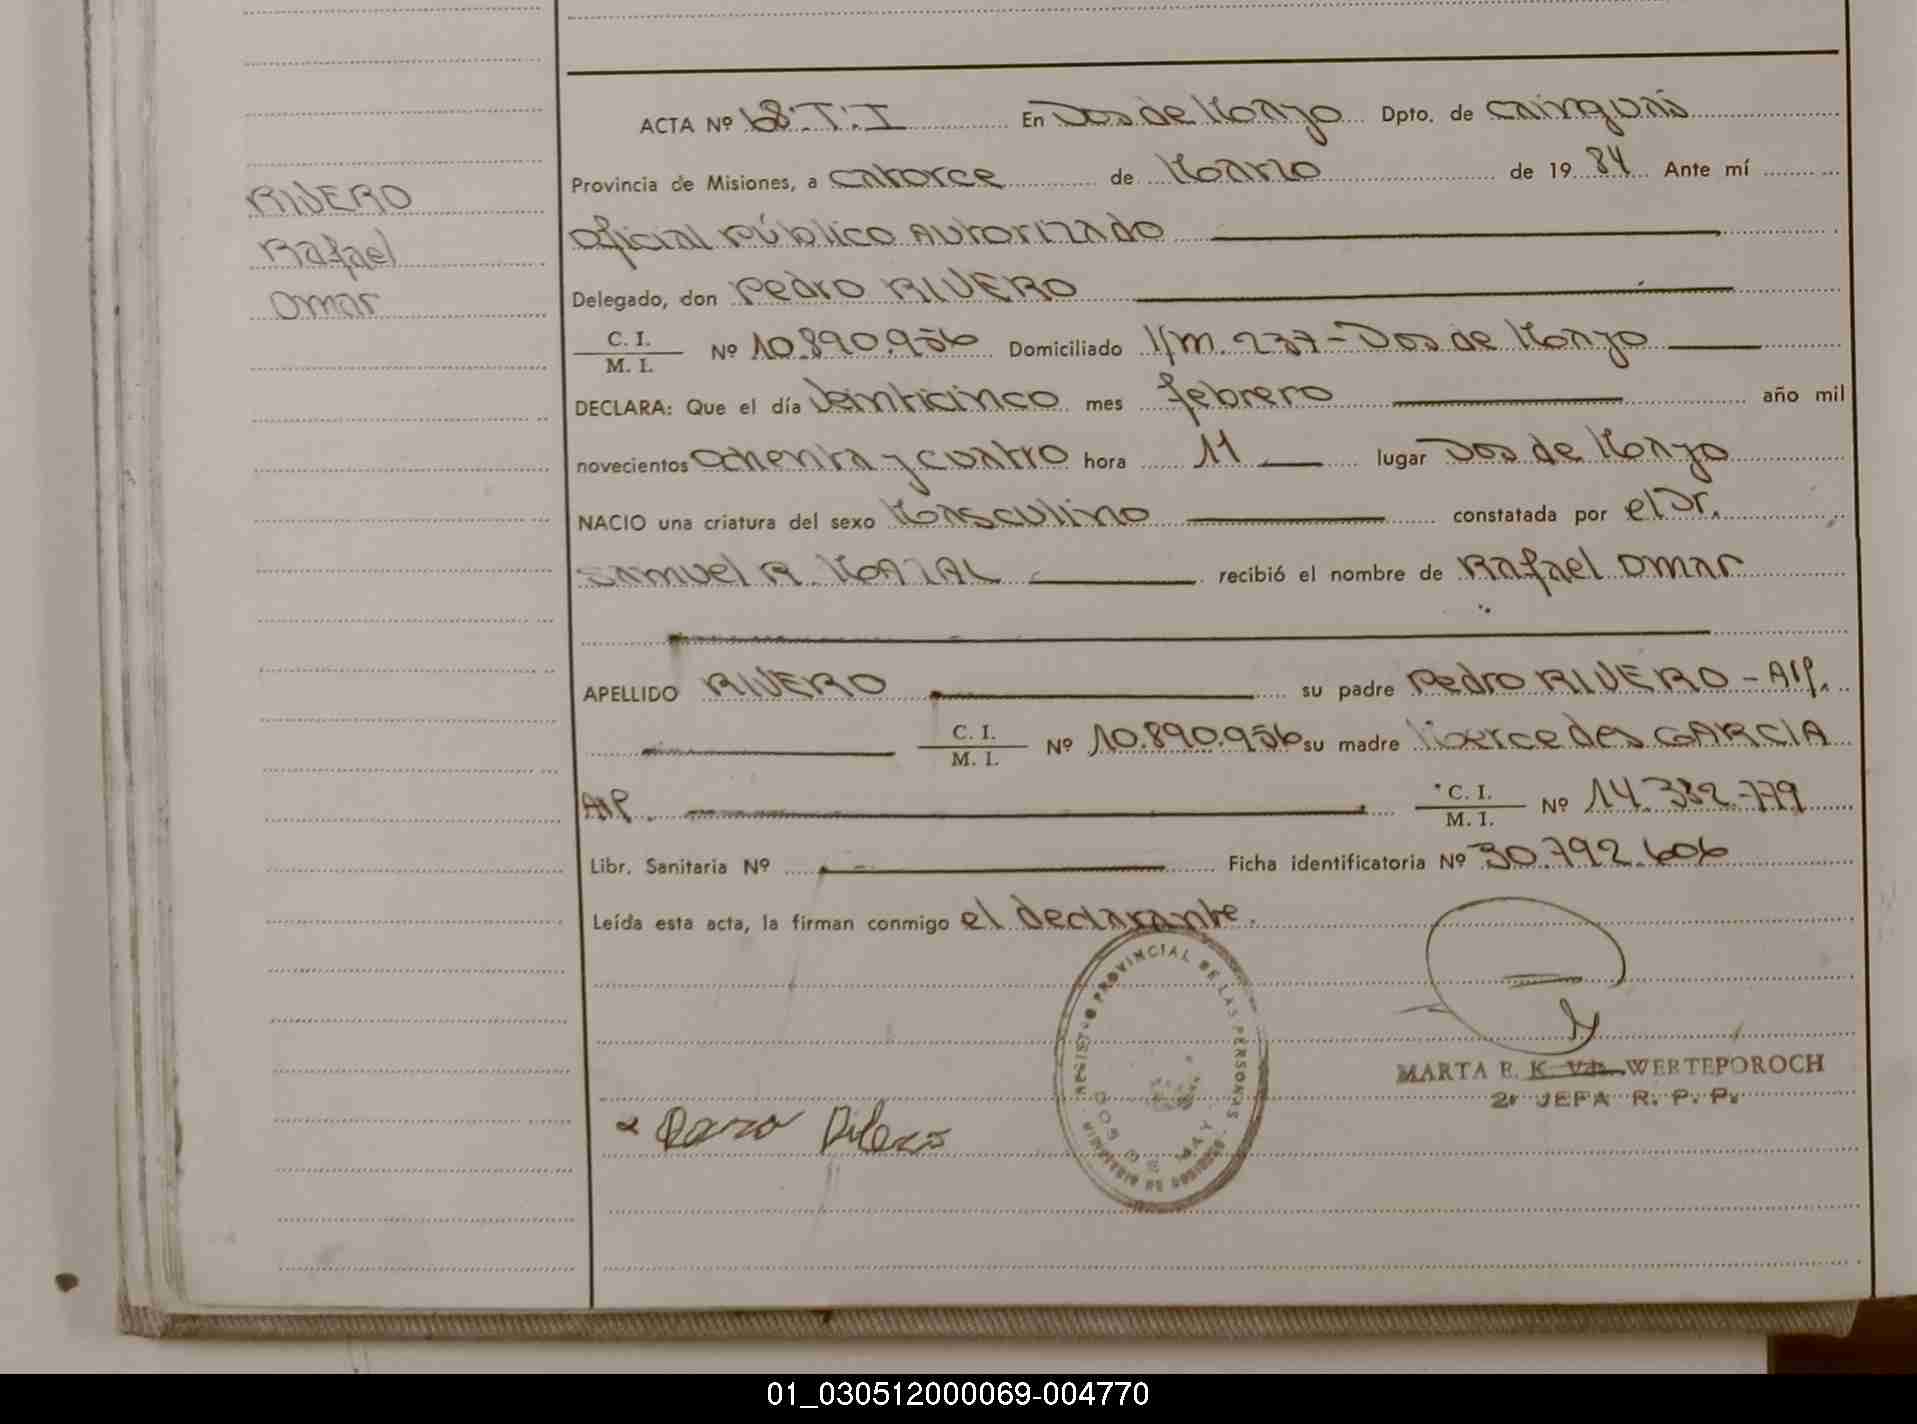 ACTA Nº 68.T.I En Dos de Mayo Dpto. de Cainguás
Provincia de Misiones, a catorce de Marzo de 19 84 Ante mí
Oficial Público Autorizado
Delegado, don Pedro RIVERO
C. I.
M. I. Nº 10.890.956 Domiciliado Km. 237 - Dos de Mayo
DECLARA: Que el día Veinticinco mes febrero año mil
novecientos Ochenta y cuatro hora 11 lugar Dos de Mayo
NACIO una criatura del sexo Masculino constatada por el Dr.
Samuel R. MAZAL recibió el nombre de Rafael Omar
APELLIDO RIVERO su padre Pedro RIVERO - Arg.
C. I.
M. I. Nº 10.890.956 su madre Mercedes GARCIA
Arg. C. I.
M. I. Nº 14.332.779
Libr. Sanitaria Nº Ficha identificatoria Nº 30.792.606
Leída esta acta, la firman conmigo el declarante.
RIVERO
Rafael
Omar
REGISTRO PROVINCIAL DE LAS PERSONAS
DOS DE MAY
MARTA E. K. Vd. WERTEPOROCH
2ª JEFA R. P. P.
01_030512000069-004770